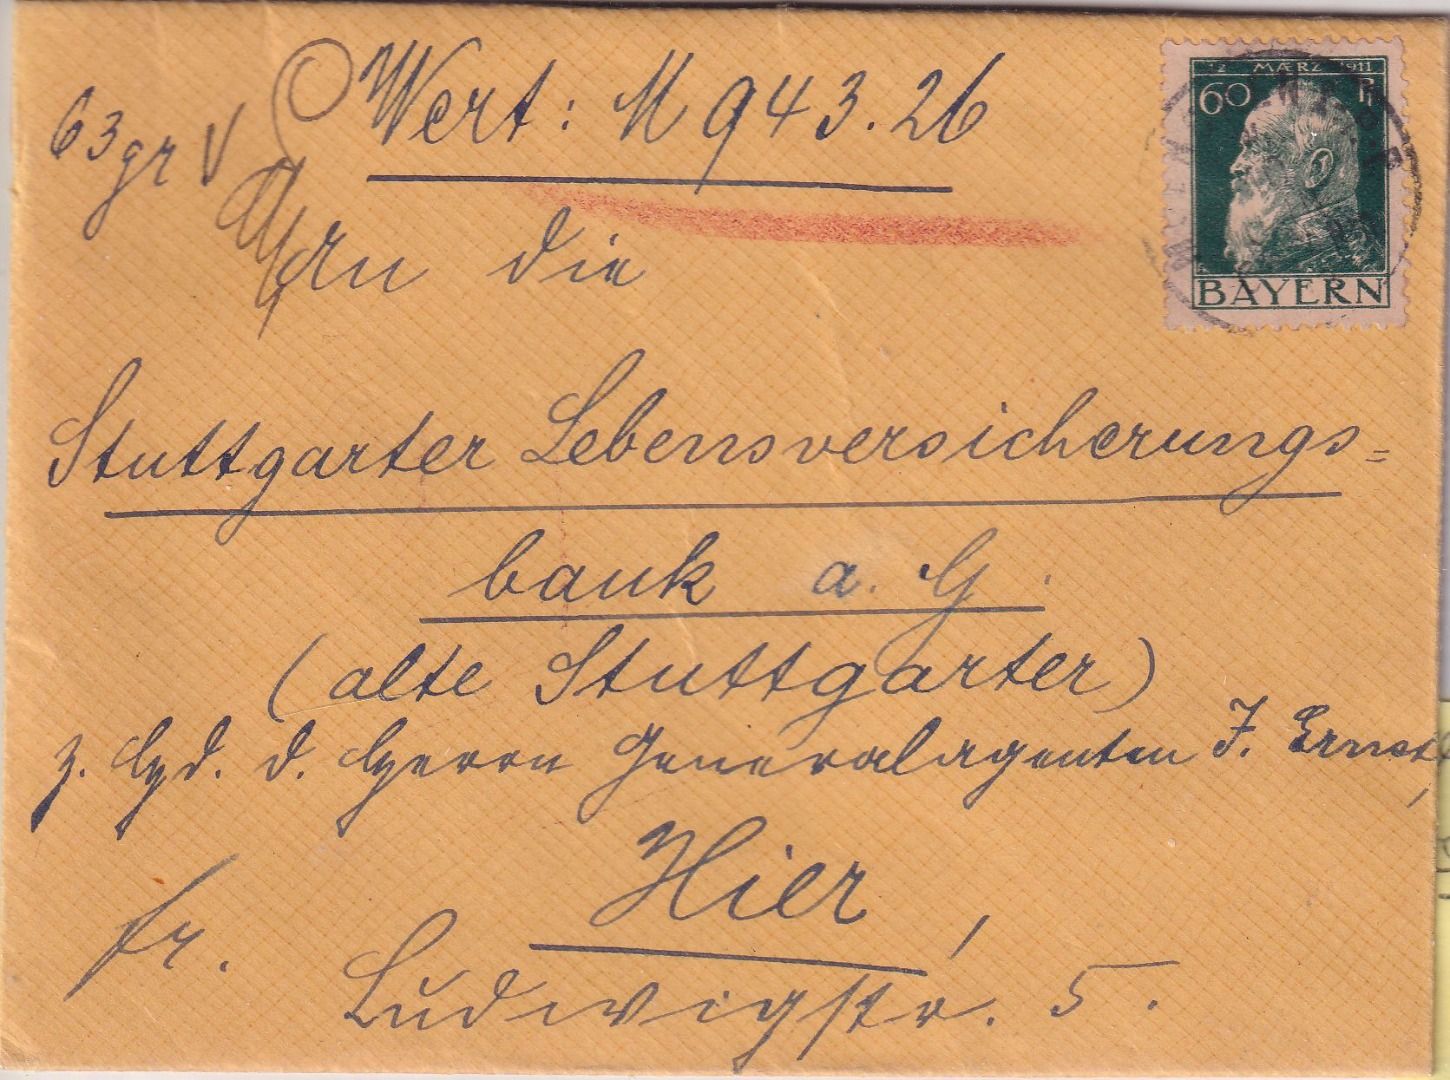 63 gr V
Wert: M 943.26
12 MÆRZ 1911
60 Pf
BAYERN
An die
Stuttgarter Lebensversicherungs=
bank a. G.
(alte Stuttgarter)
z. Hd. d. Herrn Generalagenten J. Ernst,
Hier,
fr.
Ludwigstr. 5.